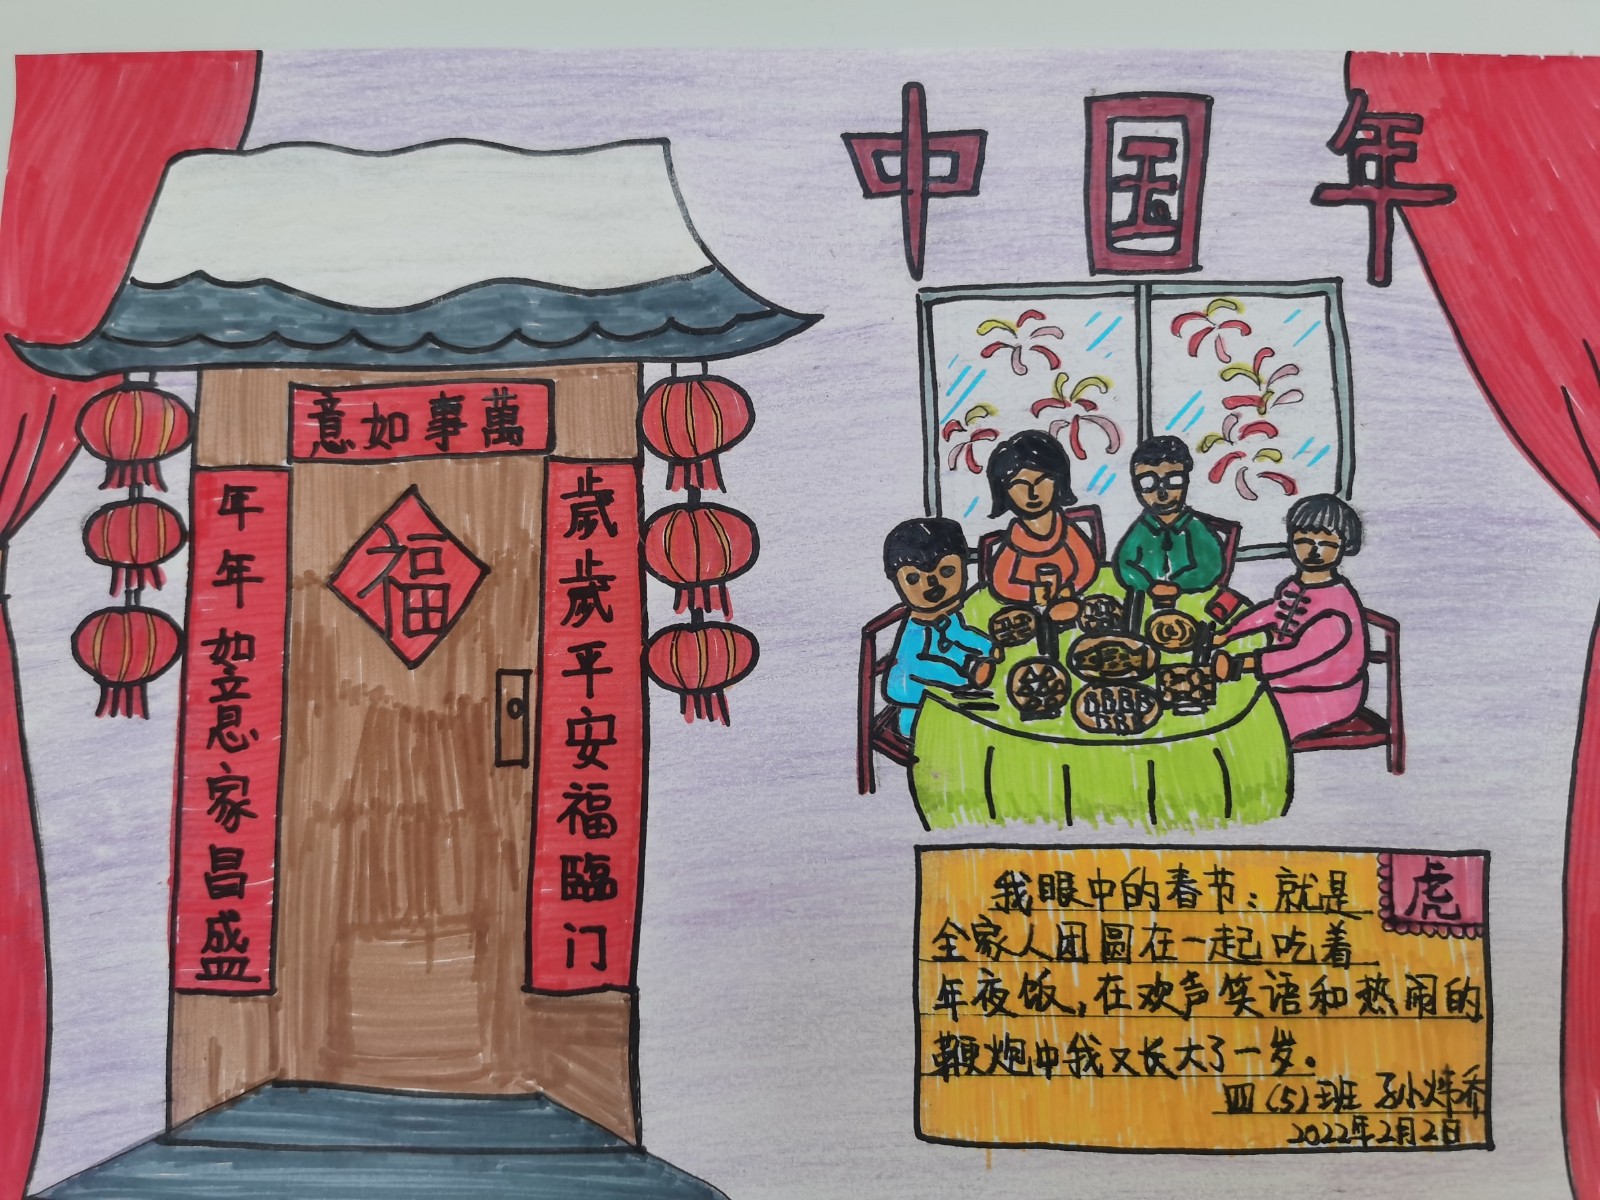 中国年
意如事萬
年年如意家昌盛
福
歲歲平安福臨门
虎
我眼中的春节：就是
全家人团圆在一起吃着
年夜饭，在欢声笑语和热闹的
鞭炮中我又长大了一岁。
四（5）班 孙炜乔
2022年2月2日